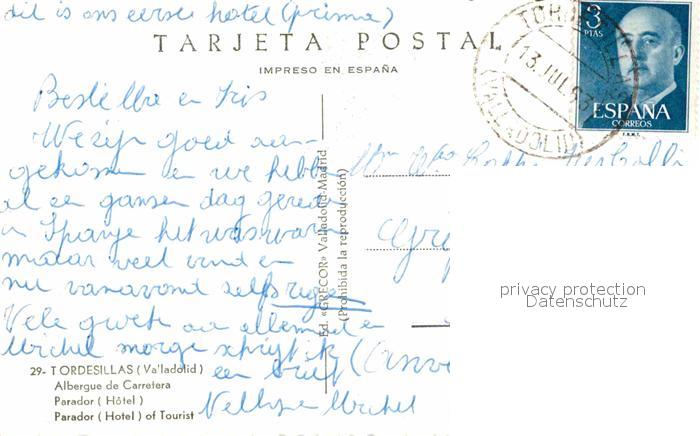 dit is ons eerste hotel (prima)
TARJETA POSTAL
IMPRESO EN ESPAÑA
3
PTAS
ESPAÑA
CORREOS
F.N.M.T.
TORDESILLAS
13 JUL
(VALLADOLID)
Beste en Iris
We zijn goed aan-
gekomen en we hebben
al een gansen dag gereden
in Spanje het was warm
maar veel wind en
nu vanavond zelfs regen
Vele groeten aan allemaal en
Michel morge schrijf ik
een brief
Michel
Ed. «GRECOR» Valladolid-Madrid
(Prohibida la reproducción)
29- TORDESILLAS (Va'ladolid)
Albergue de Carretera
Parador (Hôtel)
Parador (Hotel) of Tourist
privacy protection
Datenschutz